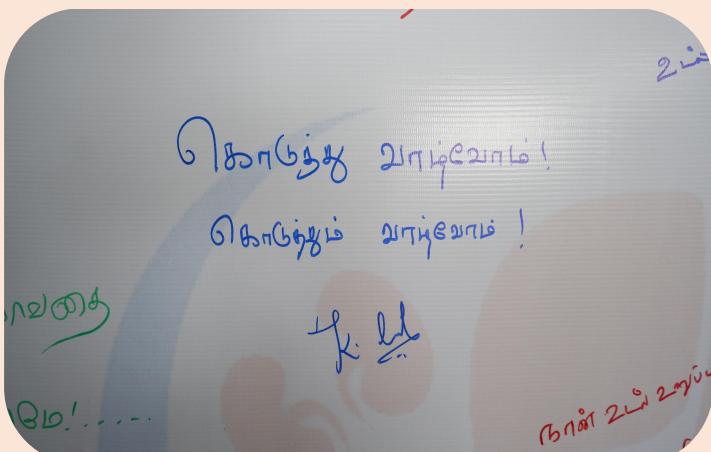 உடல்
கொடுத்து வாழ்வோம்!
கொடுத்தும் வாழ்வோம்!
ாவதை
மே!.....
நான் உடல் உறுப்பு